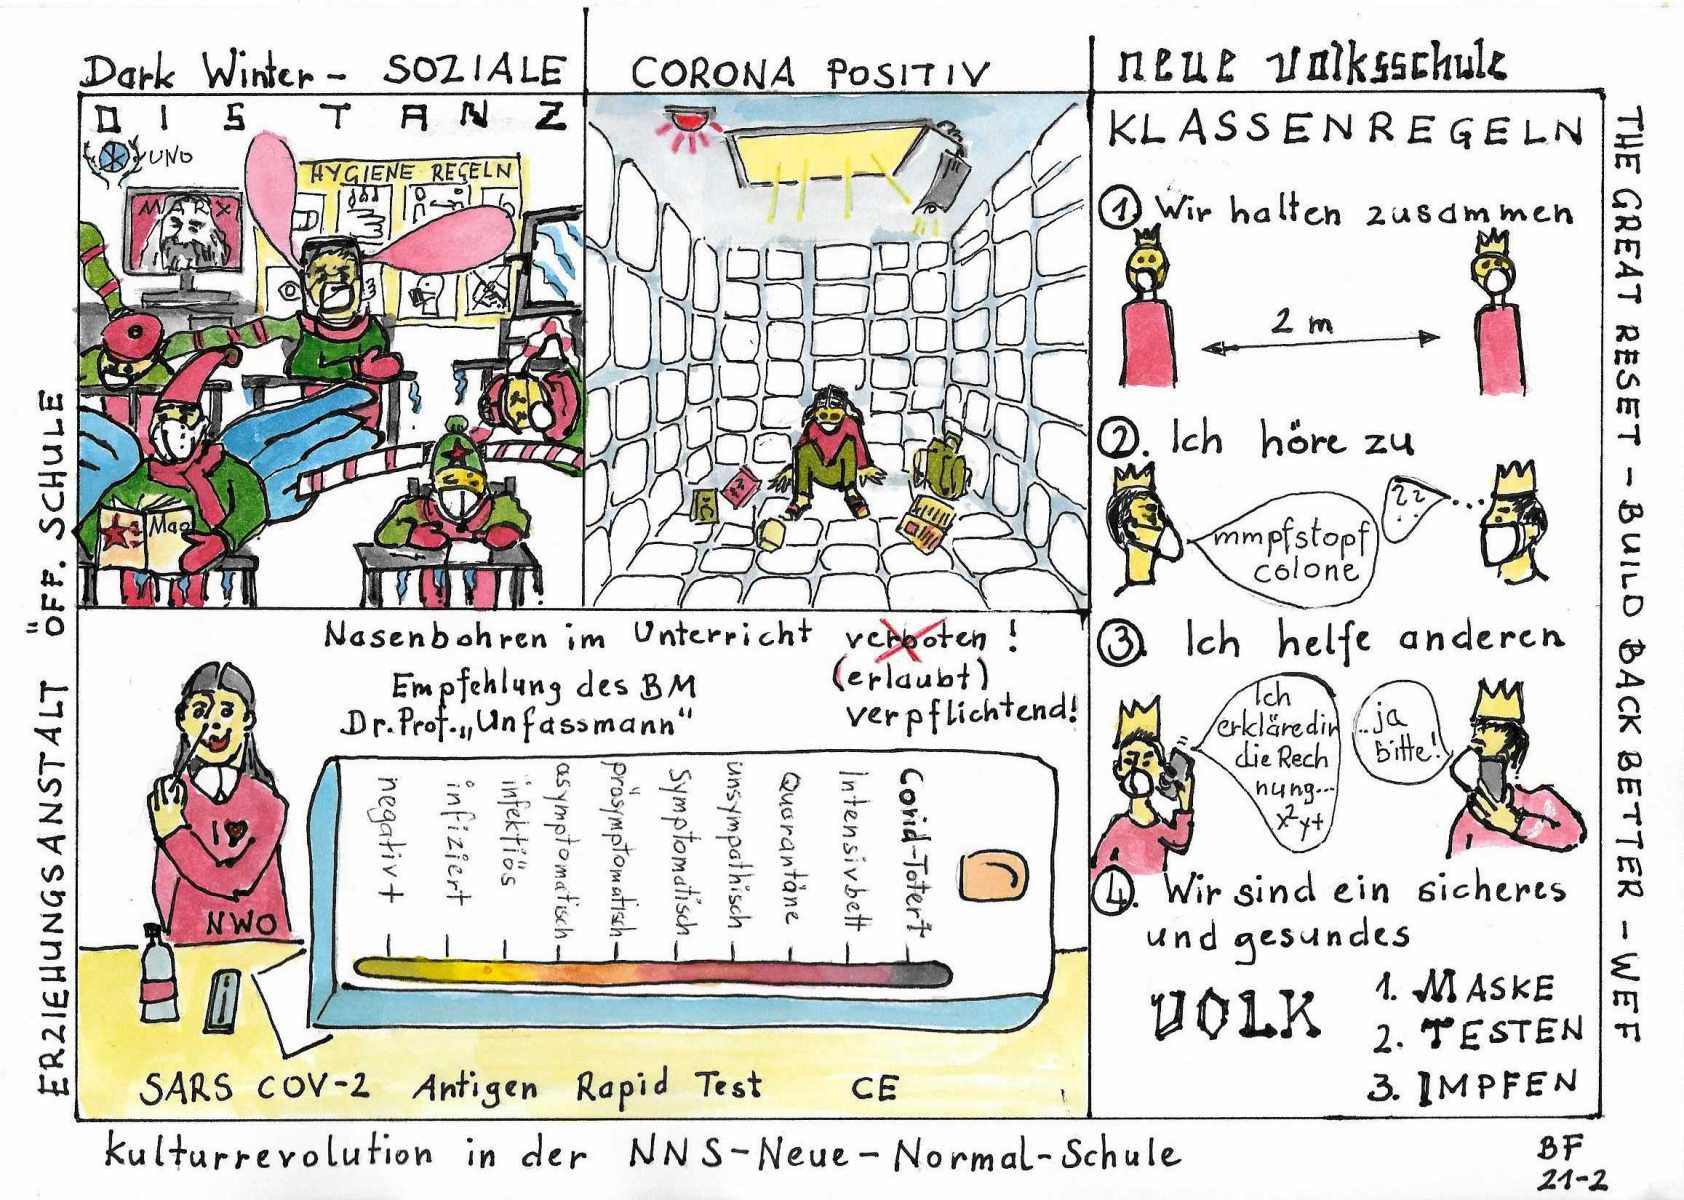 Dark Winter - SOZIALE
DISTANZ
UNO
MARX
HYGIENE REGELN
Mao
CORONA POSITIV
neue Volksschule
KLASSENREGELN
1 Wir halten zusammen
2 m
2. Ich höre zu
mmpfstopf
colone
??
3. Ich helfe anderen
Ich
erkläre dir
die Rech
nung...
x²y+
..ja
bitte!
4. Wir sind ein sicheres
und gesundes
VOLK
1. MASKE
2. TESTEN
3. IMPFEN
Nasenbohren im Unterricht verboten!
(erlaubt)
verpflichtend!
Empfehlung des BM
Dr. Prof. „Unfassmann“
I ♥
NWO
negativt
infiziert
infektiös
asymptomatisch
präsymptomatisch
Symptomatisch
unsympathisch
Quarantäne
Intensivbett
Covid-Toter†
SARS COV-2 Antigen Rapid Test CE
ERZIEHUNGSANSTALT ÖFF. SCHULE
THE GREAT RESET - BUILD BACK BETTER - WEF
Kulturrevolution in der NNS-Neue-Normal-Schule
BF
21-2